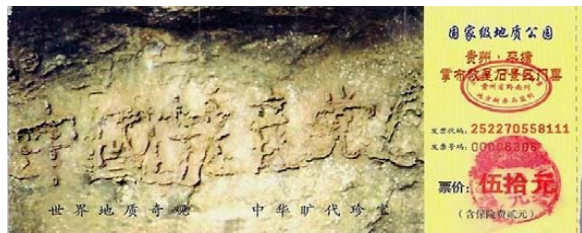 中國共产党
世界地质奇观 中华旷代珍宝
国家级地质公园
贵州·平塘
掌布藏字石景区门票
贵州省黔南州
地方税务局监制
发票代码:252270558111
发票号码:00006306
票价:伍拾元
(含保险费贰元)